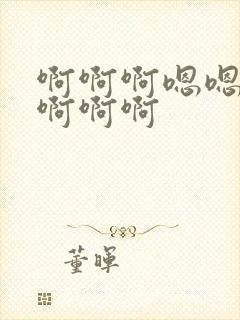 啊啊啊嗯嗯
啊啊啊
董晖